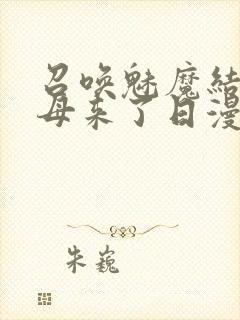 召唤魅魔结
母来了日漫
朱巍